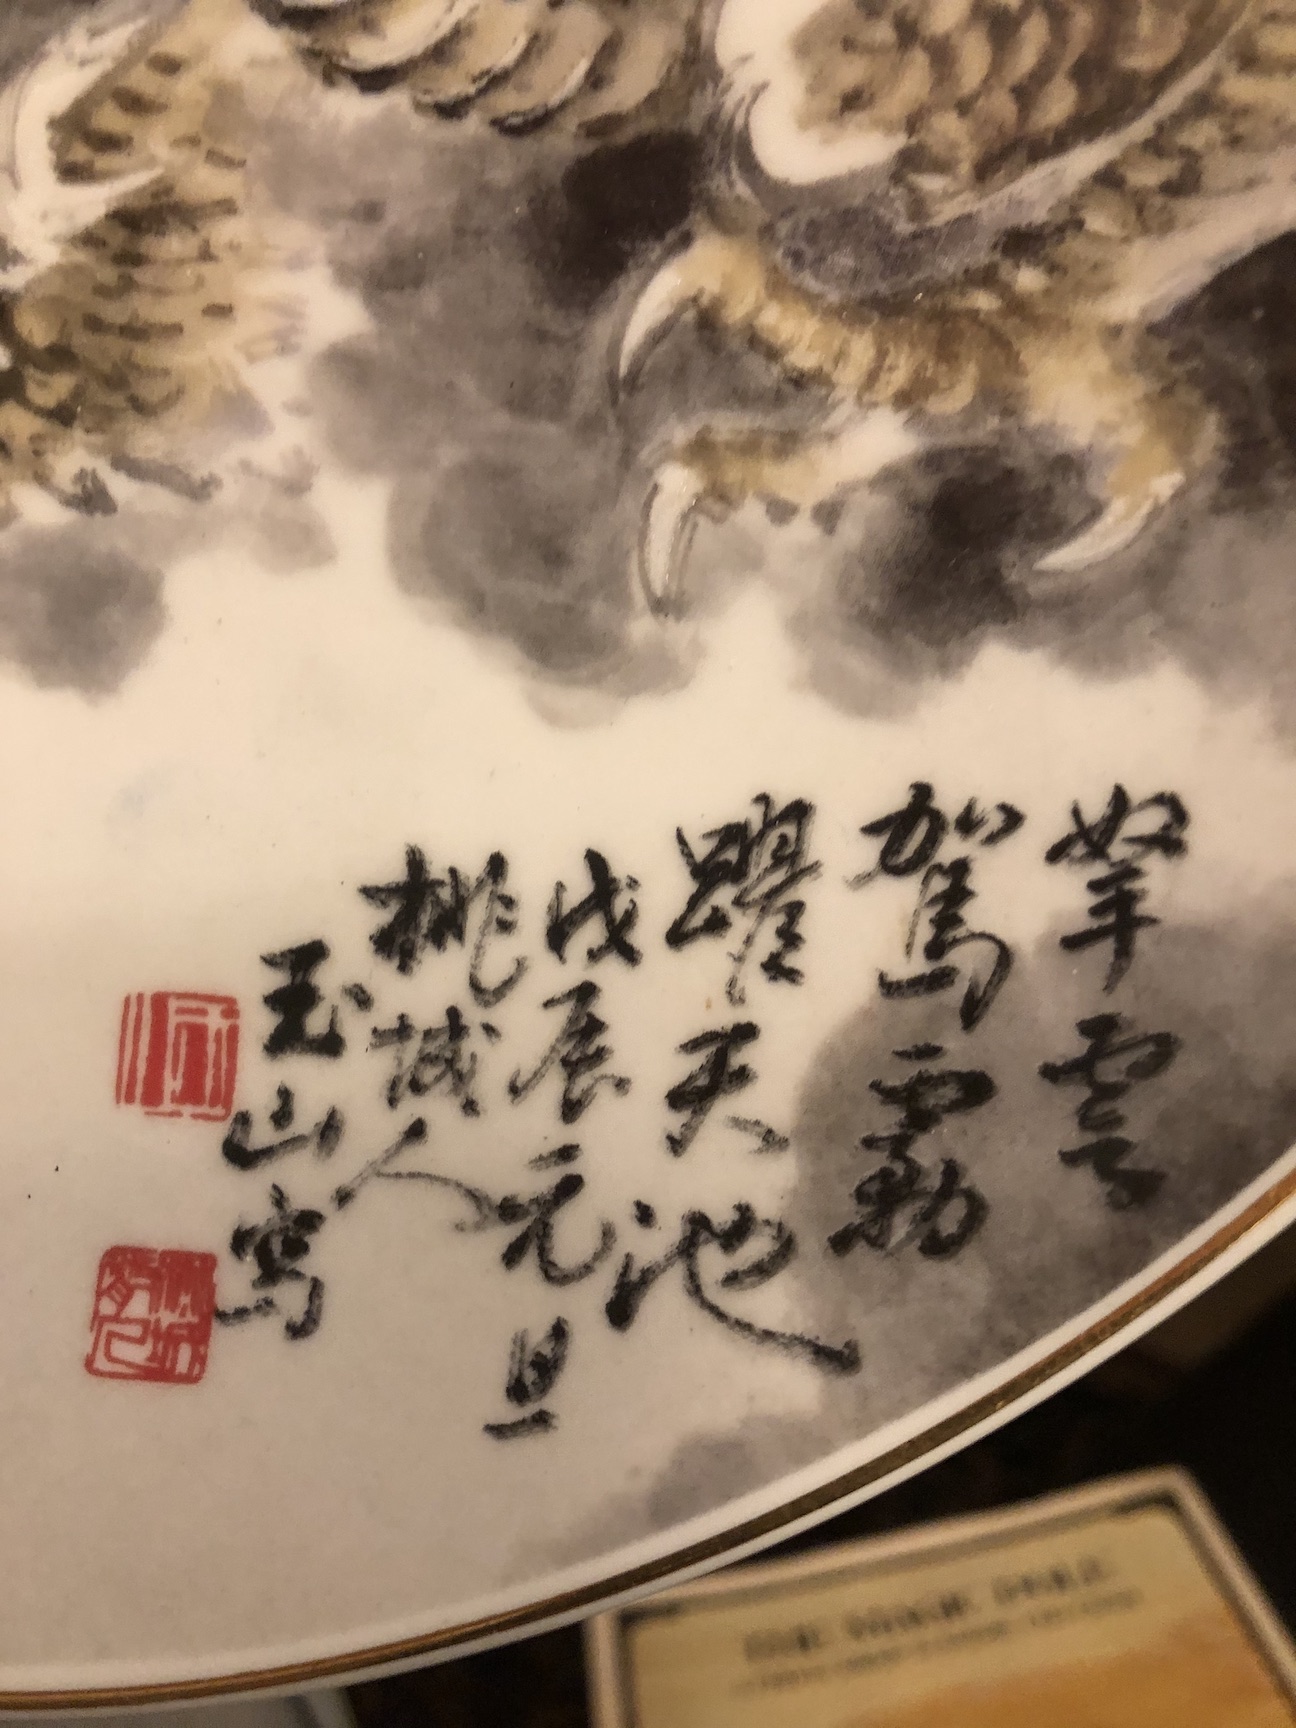 拏雲
駕霧
躍天池
戊辰元旦
桃城人
玉山寫